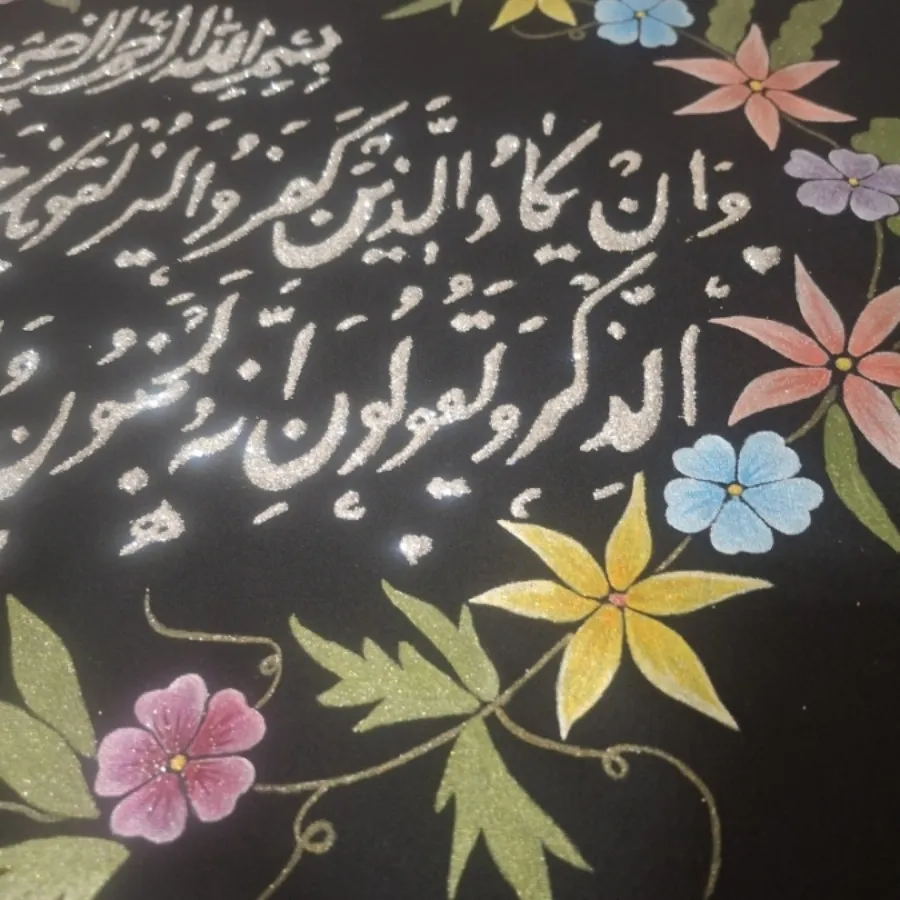 بسم الله الرحمن الرحیم
وَاِنْ یَکٰادُ الَّذینَ کَفَرُوا لَیُزْلِقُونَ
الذِّکْرَ وَ یَقُولُونَ اِنَّهُ لَمَجْنُون وَ